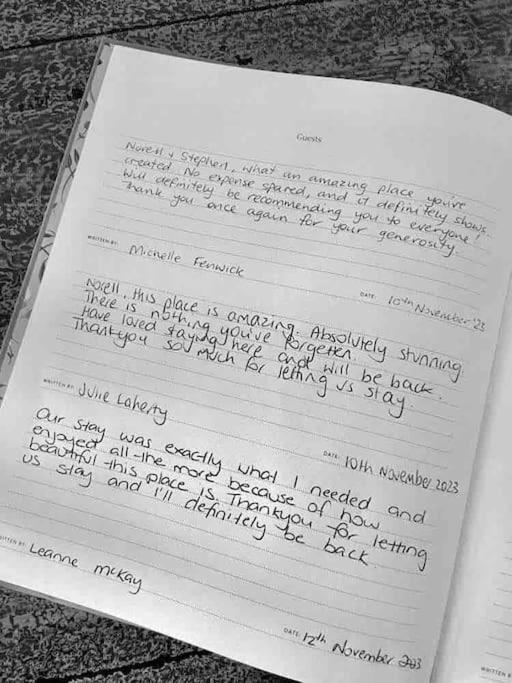 Guests
Norell & Stephen, what an amazing place you've
created. No expense spared, and it definitely shows.
Will definitely be recommending you to everyone!
Thank you once again for your generosity.
WRITTEN BY: Michelle Fenwick
DATE: 10th November '23
Norell, this place is amazing. Absolutely stunning.
There is nothing you've forgotten.
Have loved staying here and will be back.
Thankyou sou much for letting us stay.
WRITTEN BY: Julie Laherty
DATE: 10th November 2023
Our stay was exactly what I needed and
enjoyed all the more because of how
beautiful this place is. Thankyou for letting
us stay and I'll definitely be back
WRITTEN BY: Leanne McKay
DATE: 12th November 2023
WRITTEN BY